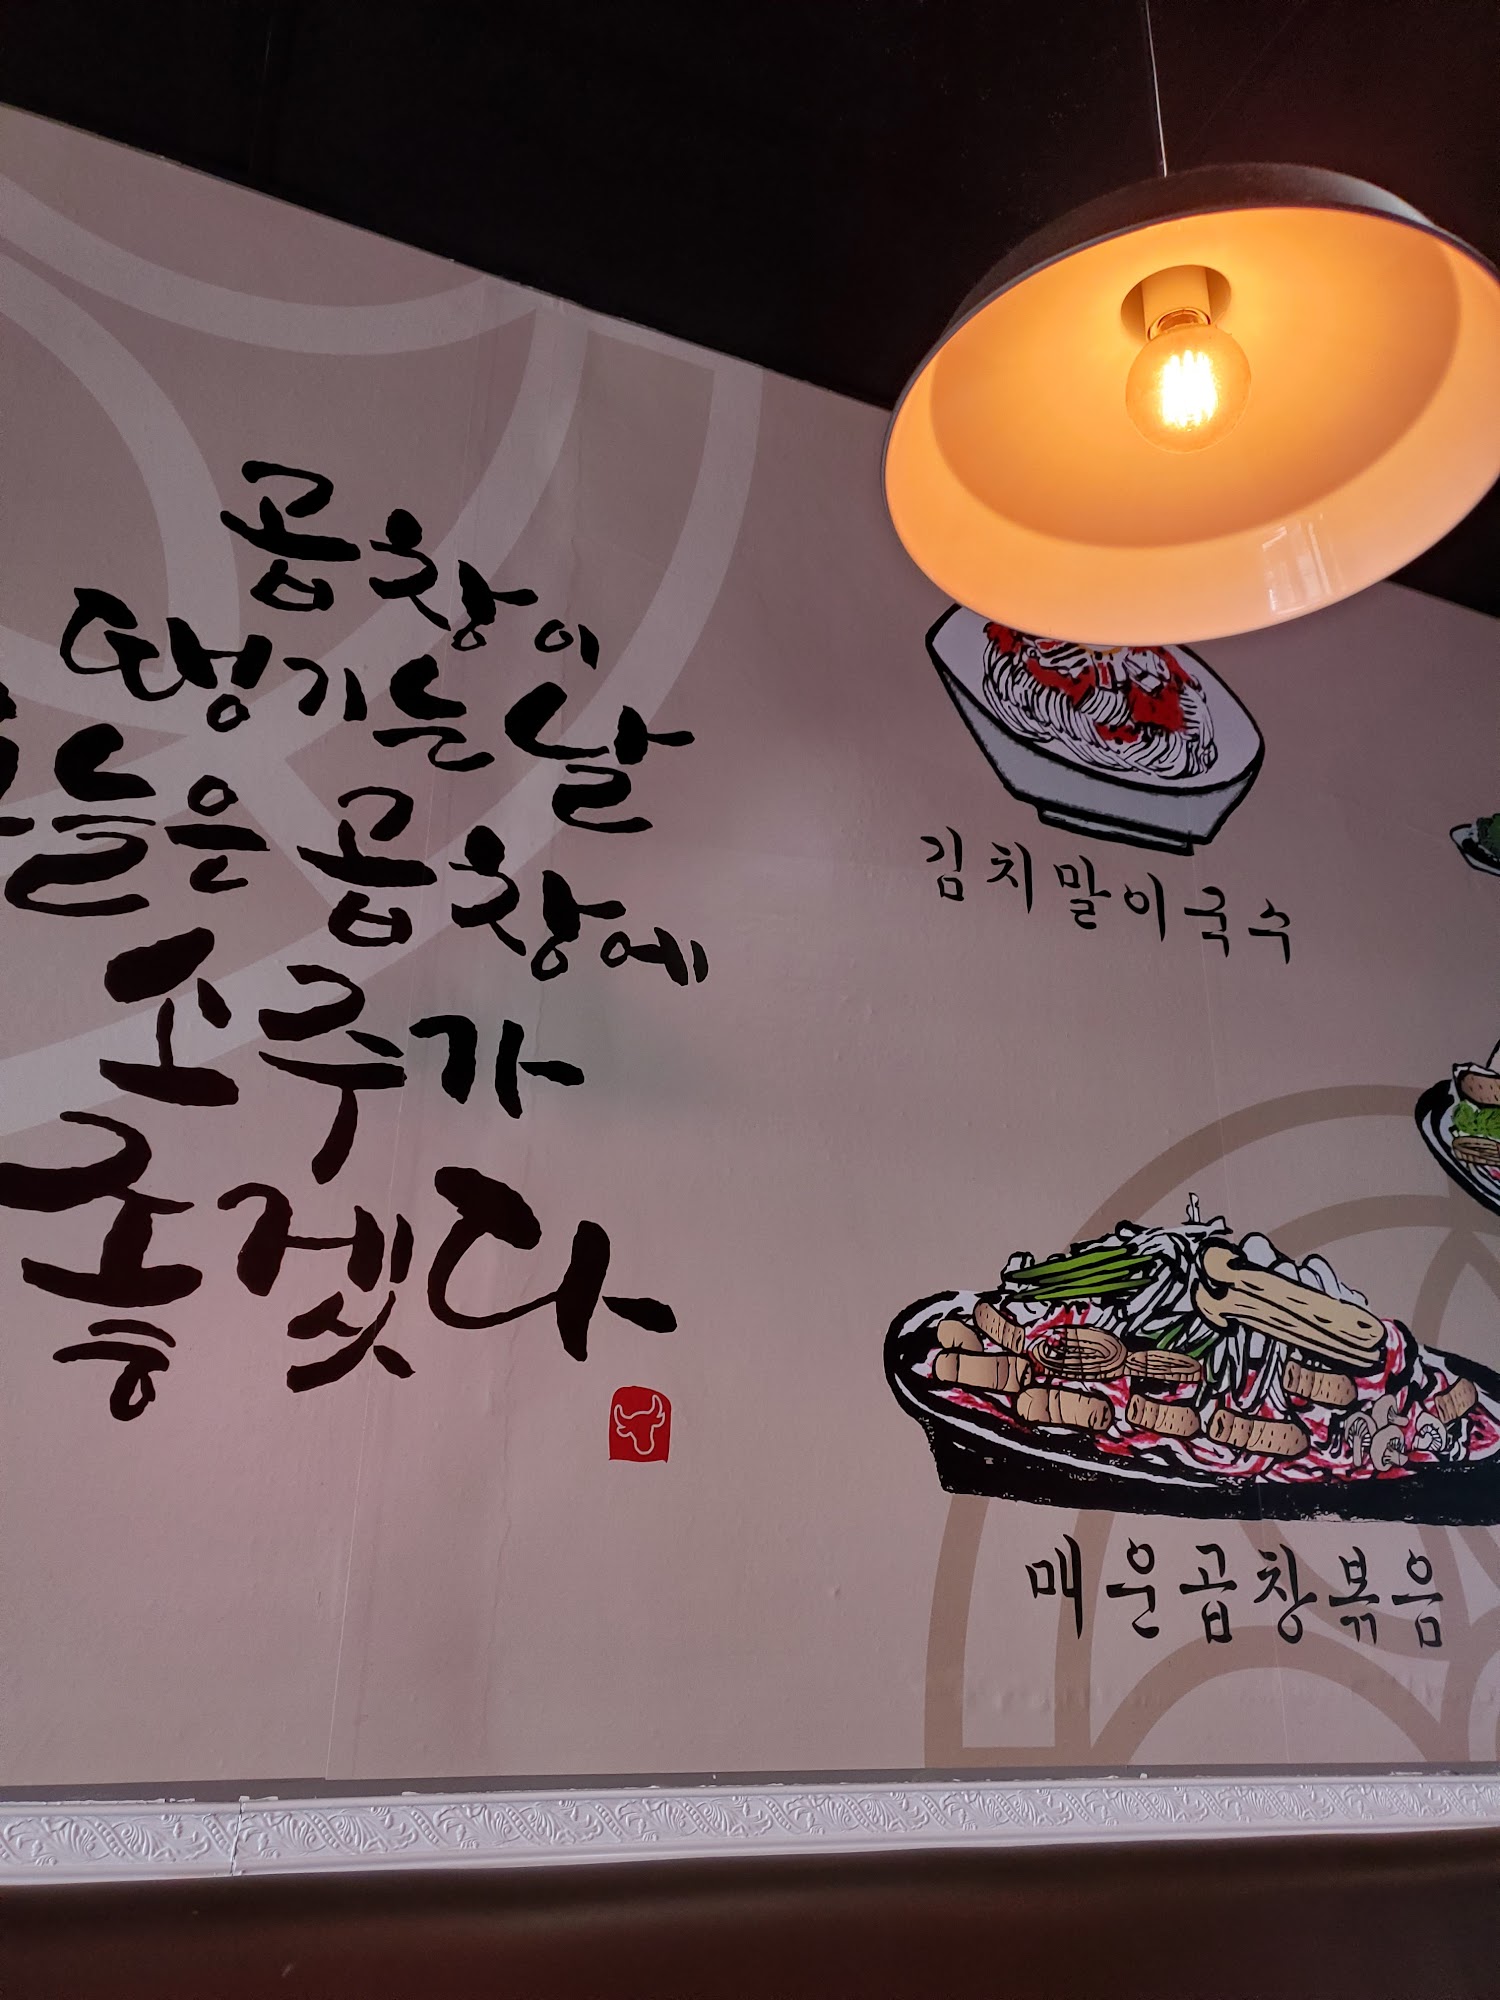 곱창이
땡기는날
오늘은 곱창에
소주가
좋겠다
김치말이국수
매운곱창볶음